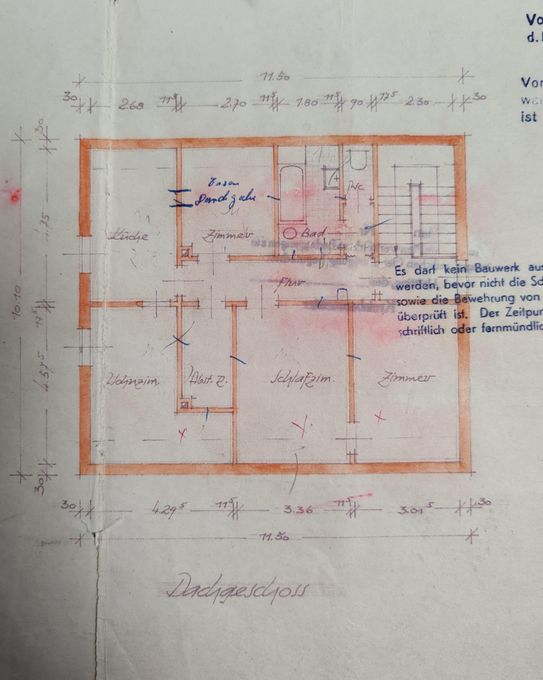 Vo
d. 
Vor
ist
11.50
30 2.68 11⁵ 2.70 11⁵ 1.80 11⁵ 90 17⁵ 2.30 30
Küche
Zimmer
Bad
WC
Flur
Es darf kein Bauwerk aus
werden, bevor nicht die Sch
sowie die Bewehrung von
überprüft ist. Der Zeitpun
schriftlich oder fernmündlic
30
4.75
10.10
11⁵
4.57⁵
30
Wohnzim.
Abst. R.
Schlafzim.
Zimmer
30 4.29⁵ 11⁵ 3.36 11⁵ 3.01⁵ 30
11.50
Dachgeschoss